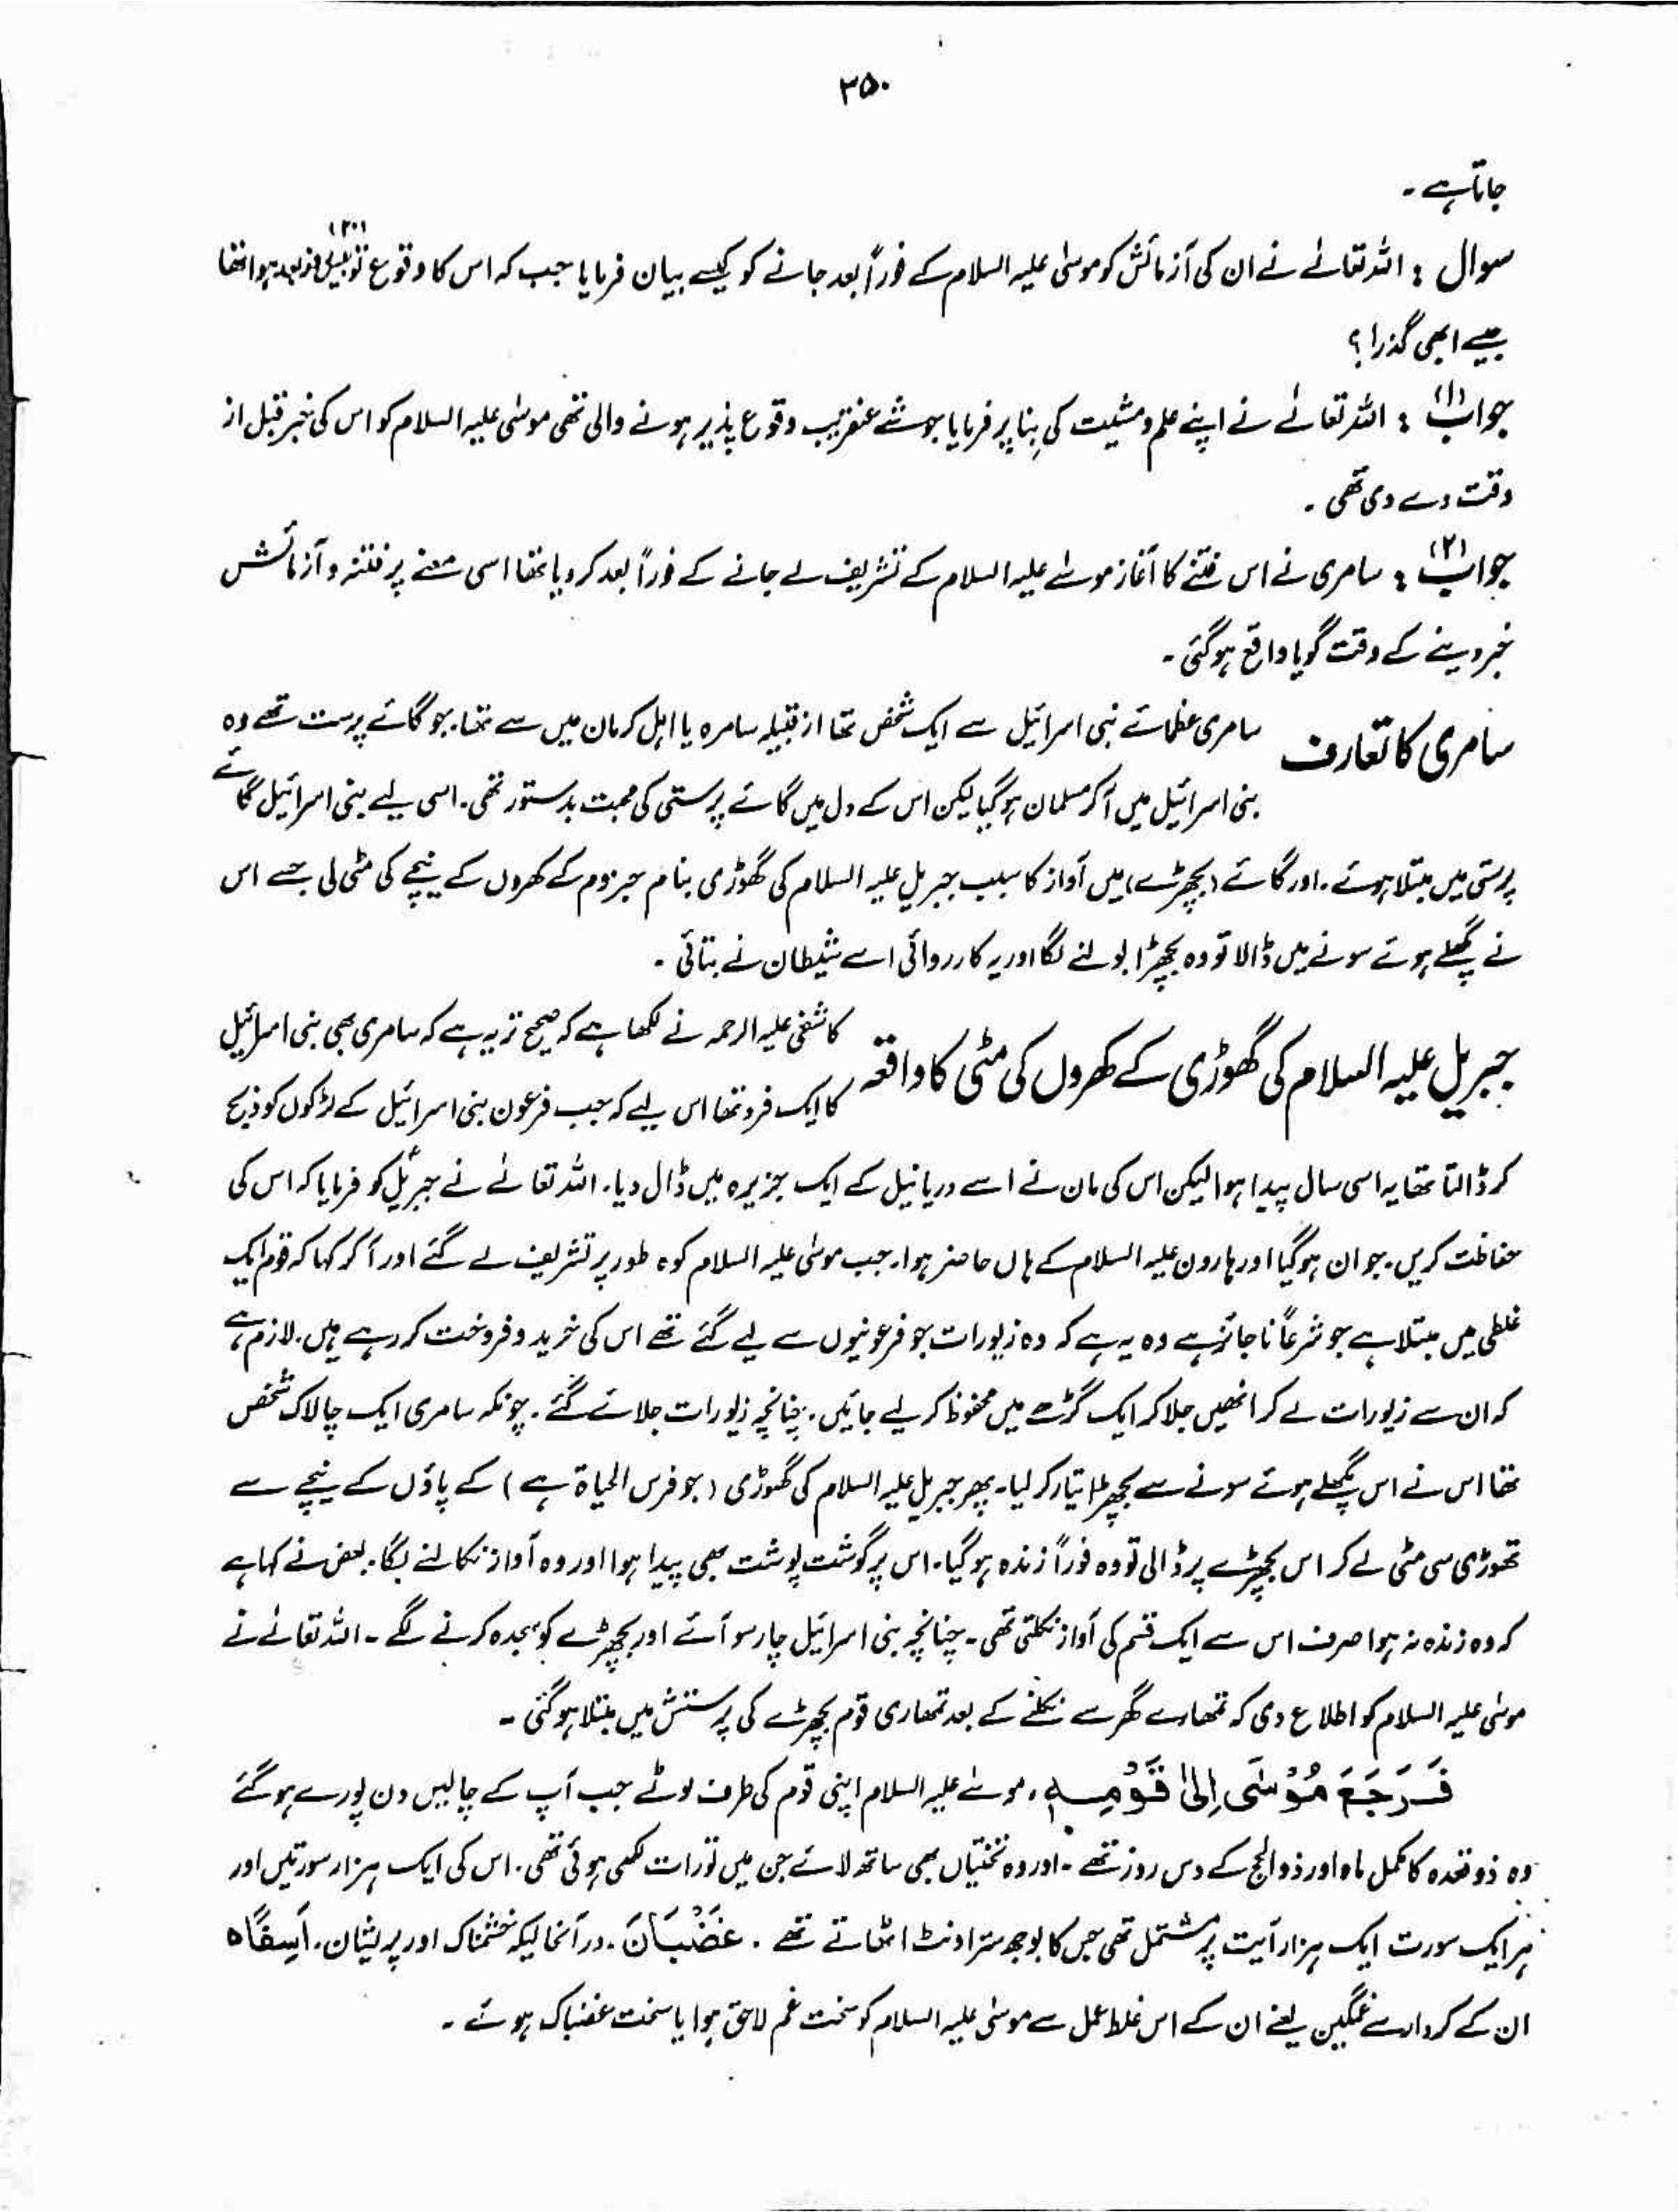 ۳۵۰
جاتا ہے ۔
سوال : اللہ تعالٰے نے ان کی آزمائش کو موسٰی علیہ السلام کے فوراً بعد جانے کو کیسے بیان فرمایا جب کہ اس کا وقوع تو بیس (۲۰) روز بعد ہوا تھا
جیسے ابھی گذرا ؟
جواب (۱) : اللہ تعالٰے نے اپنے علم و مشیت کی بِنا پر فرمایا جو شے عنقریب وقوع پذیر ہونے والی تھی موسٰی علیہ السلام کو اس کی خبر قبل از
وقت دے دی تھی ۔
جواب (۲) : سامری نے اس فتنے کا آغاز موسٰے علیہ السلام کے تشریف لے جانے کے فوراً بعد کر دیا تھا اسی معنے پر فتنہ و آزمائش
خبر دینے کے وقت گویا واقع ہو گئی ۔
سامری کا تعارف
سامری عظمائے بنی اسرائیل سے ایک شخص تھا از قبیلہ سامرہ یا اہل کرمان میں سے تھا۔ جو گائے پرست تھے وہ
بنی اسرائیل میں آکر مسلمان ہو گیا لیکن اس کے دل میں گائے پرستی کی محبت بدستور تھی۔ اسی لیے بنی اسرائیل گائے
پرستی میں مبتلا ہوئے ۔ اور گائے (بچھڑے) میں آواز کا سبب جبریل علیہ السلام کی گھوڑی بنام حیزوم کے کھروں کے نیچے کی مٹی لی جسے اس
نے پگھلے ہوئے سونے میں ڈالا تو وہ بچھڑا بولنے لگا اور یہ کارروائی اسے شیطان نے بتائی ۔
جبریل علیہ السلام کی گھوڑی کے کھروں کی مٹی کا واقعہ
کاشفی علیہ الرحمہ نے لکھا ہے کہ صحیح تر یہ ہے کہ سامری بھی بنی اسرائیل
کا ایک فرد تھا اس لیے کہ جب فرعون بنی اسرائیل کے لڑکوں کو ذبح
کر ڈالتا تھا یہ اسی سال پیدا ہوا لیکن اس کی مان نے اسے دریا نیل کے ایک جزیرہ میں ڈال دیا۔ اللہ تعالٰے نے جبرئیل کو فرمایا کہ اس کی
حفاظت کریں۔ جوان ہو گیا اور ہارون علیہ السلام کے ہاں حاضر ہوا۔ جب موسٰی علیہ السلام کوہ طور پر تشریف لے گئے اور آکر کہا کہ قوم ایک
غلطی میں مبتلا ہے جو شرعاً ناجائز ہے وہ یہ ہے کہ وہ زیورات جو فرعونیوں سے لیے گئے تھے اس کی خرید و فروخت کر رہے ہیں۔ لازم ہے
کہ ان سے زیورات لے کر انھیں جلا کر ایک گڑھے میں محفوظ کر لیے جائیں۔ چنانچہ زیورات جلائے گئے ۔ چونکہ سامری ایک چالاک شخص
تھا اس نے اس پگھلے ہوئے سونے سے بچھڑا تیار کر لیا۔ پھر جبریل علیہ السلام کی گھوڑی (جو فرس الحیاۃ ہے) کے پاؤں کے نیچے سے
تھوڑی سی مٹی لے کر اس بچھڑے پر ڈالی تو وہ فوراً زندہ ہو گیا۔ اس پر گوشت پوشت بھی پیدا ہوا اور وہ آواز نکالنے لگا۔ بعض نے کہا ہے
کہ وہ زندہ نہ ہوا صرف اس سے ایک قسم کی آواز نکلتی تھی ۔ چنانچہ بنی اسرائیل چار سو آئے اور بچھڑے کو سجدہ کرنے لگے ۔ اللہ تعالٰے نے
موسٰی علیہ السلام کو اطلاع دی کہ تمھارے گھر سے نکلنے کے بعد تمھاری قوم بچھڑے کی پرستش میں مبتلا ہو گئی ۔
فَرَجَعَ مُوْسٰی اِلٰی قَوْمِہٖ ، موسٰے علیہ السلام اپنی قوم کی طرف لوٹے جب آپ کے چالیس دن پورے ہو گئے
وہ ذوقعدہ کا مکمل ماہ اور ذوالحج کے دس روز تھے ۔ اور وہ تختیاں بھی ساتھ لائے جن میں تورات لکھی ہوئی تھی ۔ اس کی ایک ہزار سورتیں اور
ہر ایک سورت ایک ہزار آیت پر مشتمل تھی جس کا بوجھ ستر اونٹ اٹھاتے تھے ۔ غَضْبَانَ ۔ درآنحالیکہ خشمناک اور پریشان ۔ اَسِفًا ہ
ان کے کردار سے غمگین یعنے ان کے اس غلط عمل سے موسٰی علیہ السلام کو سخت غم لاحق ہوا یا سخت غضبناک ہوئے ۔